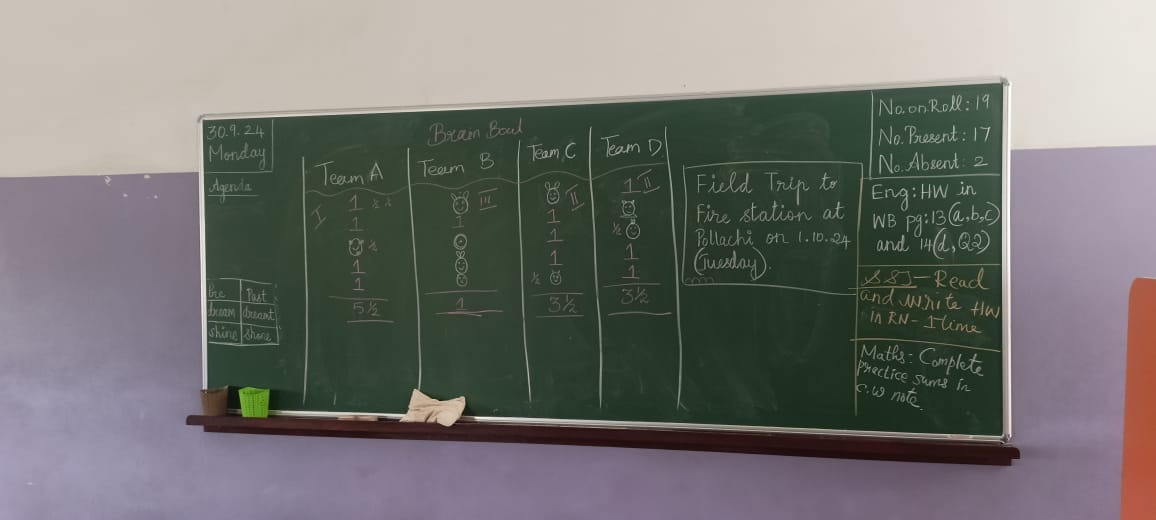 30.9.24
Monday
Agenda
Pre Past
dream dreamt
shine shone
Brain Boul
Team A
I 1 ½ ½
1
½
1
1
5½
Team B
III
1
1
Team C
II
1
1
1
½
3½
Team D
1 II
½
1
1
3½
Field Trip to
Fire station at
Pollachi on 1.10.24
(Tuesday).
No. on Roll: 19
No. Present: 17
No. Absent: 2
Eng: HW in
WB pg: 13(a,b,c)
and 14(d, Q2)
SST - Read
and write HW
in RN - 1 time
Maths: Complete
practice sums in
C.W note.